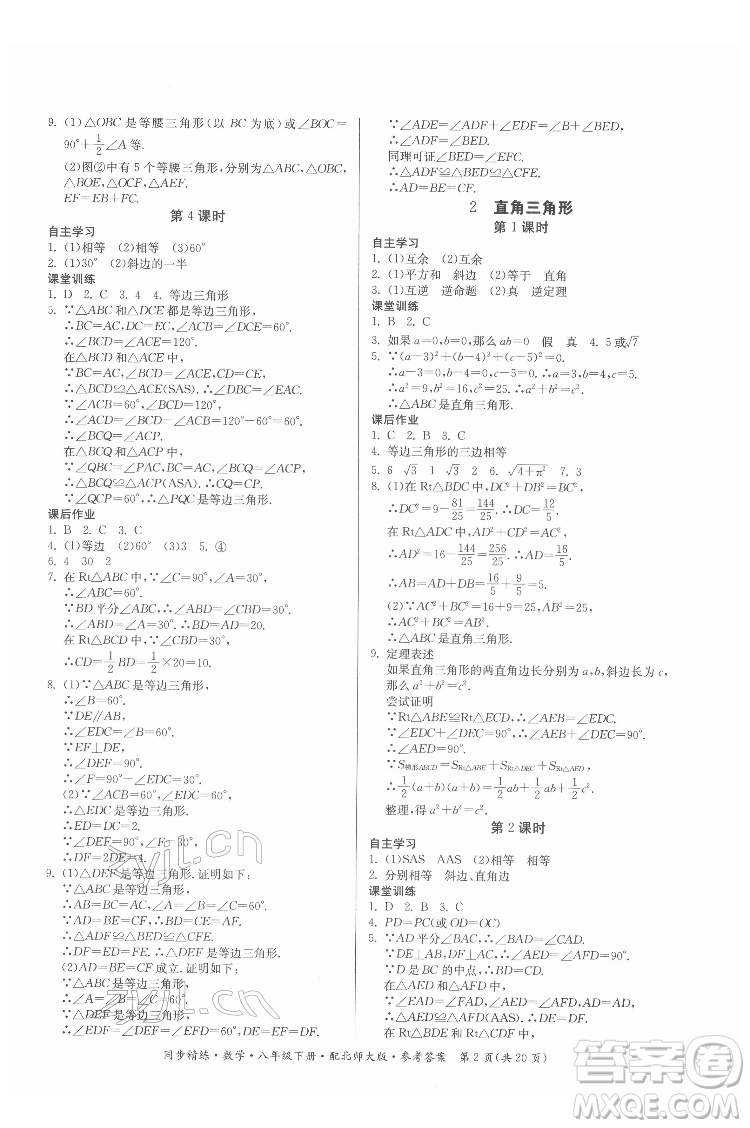 9. (1)△OBC 是等腰三角形(以 BC 为底)或∠BOC=
90°+1/2∠A 等.
(2)图②中有 5 个等腰三角形,分别为△ABC,△OBC,
△BOE,△OCF,△AEF.
EF=EB+FC.
第 4 课时
自主学习
1. (1)相等 (2)相等 (3)60°
2. (1)30° (2)斜边的一半
课堂训练
1. D 2. C 3. 4 4. 等边三角形
5. ∵△ABC 和△DCE 都是等边三角形,
∴BC=AC,DC=EC,∠ACB=∠DCE=60°.
∴∠BCD=∠ACE=120°.
在△BCD 和△ACE 中,
∵BC=AC,∠BCD=∠ACE,DC=EC,
∴△BCD≌△ACE(SAS). ∴∠DBC=∠EAC.
∵∠ACB=60°,∠BCE+∠ACB=180°,
∴∠ACD=∠DCB-∠ACB=120°-60°=60°.
∴∠BCQ=∠ACP.
在△BCQ 和△ACP 中,
∵∠QBC=∠PAC,BC=AC,∠BCQ=∠ACP,
∴△BCQ≌△ACP(ASA). ∴CQ=CP.
∵∠QCP=60°,∴△PQC 是等边三角形.
课后作业
1. B 2. C 3. C
4. (1)等边 (2)60° (3)3 5. ④
6. 4 30 2
7. 在 Rt△ABC 中,∵∠C=90°,∠A=30°,
∴∠ABC=60°.
∵BD 平分∠ABC,∴∠ABD=∠CBD=30°.
∴∠ABD=∠A=30°.∴BD=AD=20.
在 Rt△BCD 中,∵∠CBD=30°,
∴CD=1/2BD=1/2×20=10.
8. (1)∵△ABC 是等边三角形,
∴∠B=60°.
∵DE∥AB,
∴∠EDC=∠B=60°.
∵EF⊥DE,
∴∠DEF=90°.
∴∠F=90°-∠EDC=30°.
(2)∵△ABC 是等边三角形,
∴∠ACB=60°.∵∠EDC=60°,
∴△EDC 是等边三角形.
∴ED=DC=2.
∵∠DEF=90°,∠F=30°,
∴DF=2DE=4.
9. (1)△DEF 是等边三角形. 证明如下:
∵△ABC 是等边三角形,
∴∠A=∠B=∠C,AB=BC=CA.
∵AD=BE=CF,∴DB=CE=AF.
∴△ADF≌△BED≌△CFE.
∴DF=ED=FE.∴△DEF 是等边三角形.
(2)AD=BE=CF 成立. 证明如下:
∵△ABC 是等边三角形,
∴∠A=∠B=∠C=60°.
∵△DEF 是等边三角形,
∴∠EDF=∠DEF=∠EFD=60°,DF=ED=FE.
∵∠ADE=∠ADF+∠EDF=∠B+∠BED,
∴∠ADF=∠BED.
同理可证∠BED=∠EFC.
∴△ADF≌△BED≌△CFE.
∴AD=BE=CF.
2 直角三角形
第 1 课时
自主学习
1. (1)互余 (2)互余
2. (1)平方和 斜边 (2)等于 直角
3. (1)互逆 逆命题 (2)真 逆定理
课堂训练
1. B 2. C
3. 如果 a=0,b=0,那么 ab=0 假 真 4. 5 或√7
5. ∵(a-3)²+(b-4)²+(c-5)²=0,
∴a-3=0,b-4=0,c-5=0.∴a=3,b=4,c=5.
∴a²=9,b²=16,c²=25.∴a²+b²=c².
∴△ABC 是直角三角形.
课后作业
1. C 2. B 3. C
4. 等边三角形的三边相等
5. 6 √3 1 √3 2 6. √(4+π²) 7. 3
8. (1)在 Rt△BCD 中,∵CD²+DB²=BC²,
∴DC²=9-81/25=144/25.∴DC=12/5.
在 Rt△ACD 中,∵AD²+CD²=AC²,
∴AD²=16-144/25=256/25.∴AD=16/5.
∴AB=AD+DB=16/5+9/5=5.
(2)∵AC²+BC²=16+9=25,AB²=25,
∴AC²+BC²=AB².
∴△ABC 是直角三角形.
9. 定理表述
如果直角三角形的两直角边长分别为 a,b,斜边长为 c,
那么 a²+b²=c².
尝试证明
∵Rt△ABE≌Rt△ECD,∴∠AEB=∠EDC.
∵∠EDC+∠DEC=90°,∴∠AEB+∠DEC=90°.
∴∠AED=90°.
∵S梯形ABCD=SRt△ABE+SRt△DEC+SRt△AED,
∴1/2(a+b)(a+b)=1/2ab+1/2ab+1/2c².
整理,得 a²+b²=c².
第 2 课时
自主学习
1. (1)SAS AAS (2)相等 相等
2. 分别相等 斜边、直角边
课堂训练
1. D 2. B 3. C
4. PD=PC(或 OD=OC)
5. ∵AD 平分∠BAC,∴∠BAD=∠CAD.
∵DE⊥AB,DF⊥AC,∴∠AED=∠AFD=90°.
∵D 是 BC 的中点,∴DB=DC.
在△AED 和△AFD 中,
∵∠AED=∠AFD=90°,∠EAD=∠FAD,
同步精练·数学·八年级下册·配北师大版·参考答案 第 2 页(共 20 页)
zyjl.cn
作业精灵